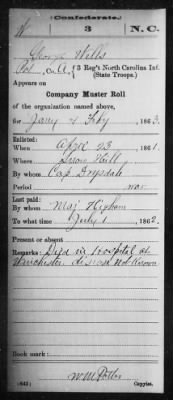 (Confederate.)
W 3 N.C.
George Wells
Pvt, Co. A, 3 Reg't North Carolina Inf.
(State Troops.)
Appears on
Company Muster Roll
of the organization named above,
for Jany & Feby, 1863.
Enlisted:
When April 23, 1861.
Where
By whom Cap Drysdale
Period war
Last paid:
By whom Maj Higham
To what time July 1, 1862.
Present or absent
Remarks: Died in Hospital at
Winchester. disease Not Known
Book mark:
(642) Copyist.